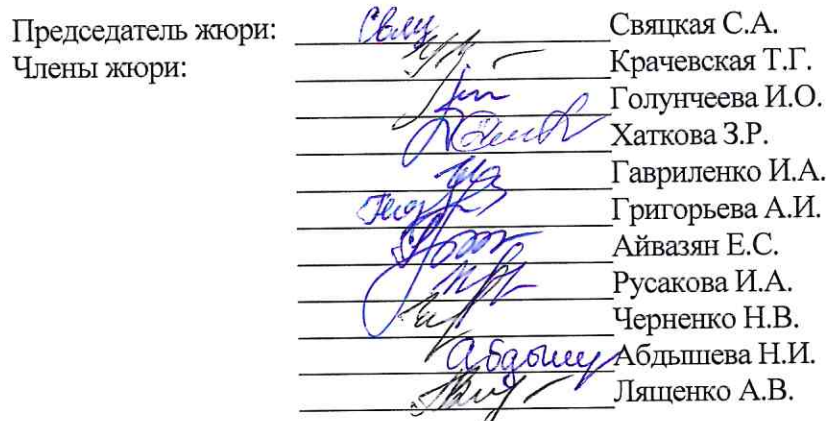 Председатель жюри: Свяцкая С.А.
Члены жюри: Крачевская Т.Г.
Голунчеева И.О.
Хаткова З.Р.
Гавриленко И.А.
Григорьева А.И.
Айвазян Е.С.
Русакова И.А.
Черненко Н.В.
Абдышева Н.И.
Лященко А.В.